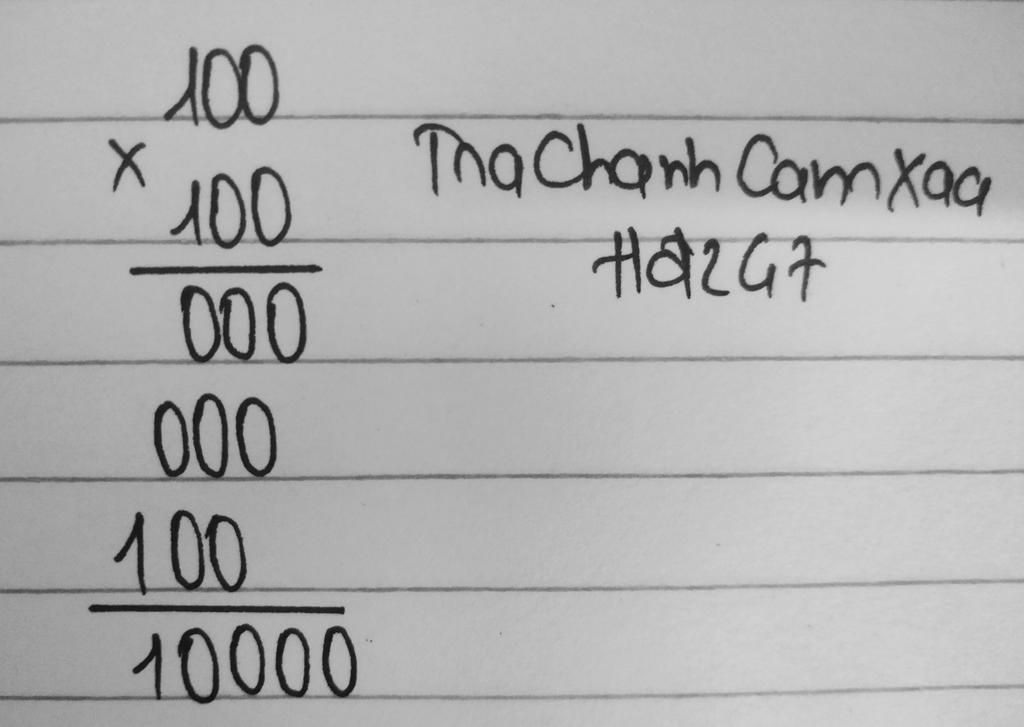 100
x
100
000
000
100
10000
TraChanhCamXaa
Hơi2G7